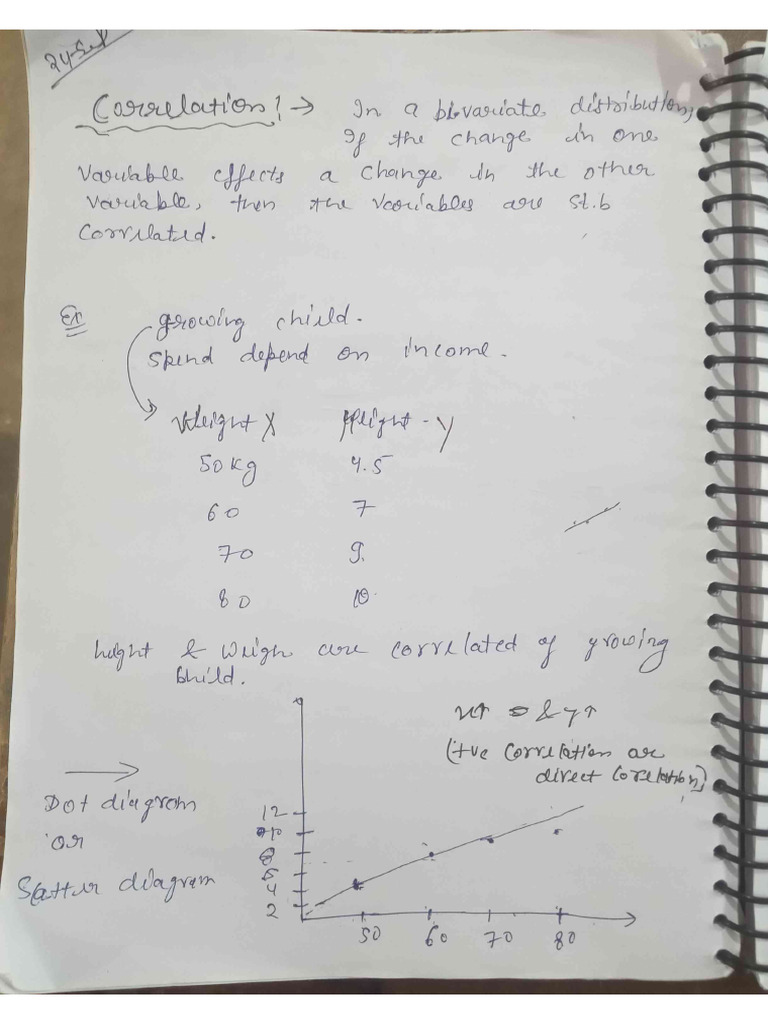 24-Sep
Correlation! → In a bi-variate distribution,
If the change in one
Variable effects a change in the other
Variable, then the variables are st.b
Correlated.
Ex growing chield.
Spend depend on income.
Weight X Height - Y
50 kg 4.5
60 7
70 9.
80 10
height & weigh are correlated of growing
bhild.
x↑ & y↑
(+ve Correlation are
direct Corelation)
→
Dot diagram
or
Scatter diagram
12
10
8
6
4
2
50 60 70 80